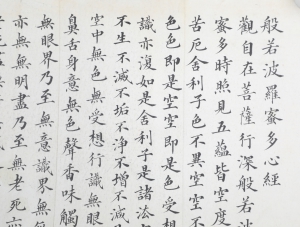 般若波羅蜜多心經
觀自在菩薩行深般若波
蜜多時照見五蘊皆空度
苦厄舍利子色不異空空不
色色即是空空即是色受想
識亦復如是舍利子是諸法
不生不滅不垢不淨不增不減
空中無色無受想行識無眼
鼻舌身意無色聲香味觸
無眼界乃至無意識界無
亦無無明盡乃至無老死亦